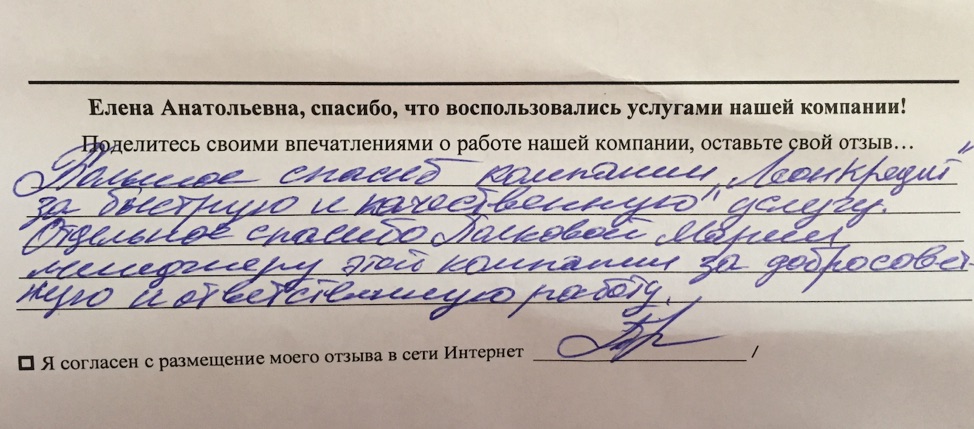 Елена Анатольевна, спасибо, что воспользовались услугами нашей компании!
Поделитесь своими впечатлениями о работе нашей компании, оставьте свой отзыв…
Большое спасиб компании „ЛеонКредит"
за быструю и качественную услугу.
Отдельное спасибо Марии
менеджеру этой компании за добросовет-
ную и ответственную работу.
Я согласен с размещение моего отзыва в сети Интернет /